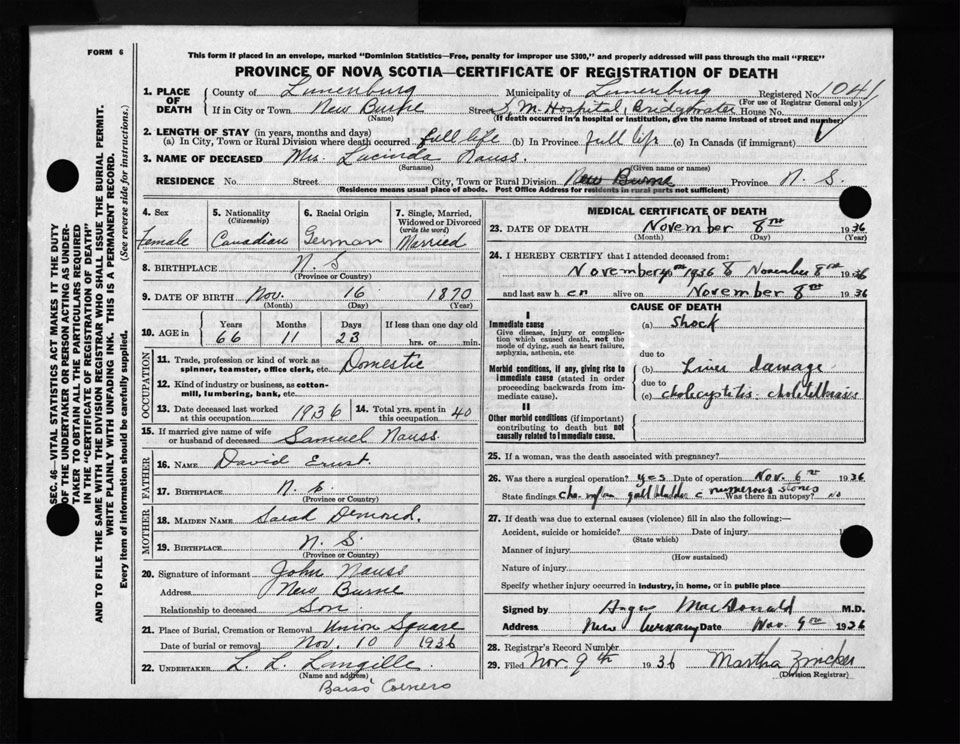 FORM 6
This form if placed in an envelope, marked "Dominion Statistics—Free, penalty for improper use $300," and properly addressed will pass through the mail "FREE"
PROVINCE OF NOVA SCOTIA—CERTIFICATE OF REGISTRATION OF DEATH
1. PLACE OF DEATH
County of Lunenburg Municipality of Lunenburg Registered No. 1041
(For use of Registrar General only)
If in City or Town New Burne Street Hospital, Bridgewater House No.
(Name) (If death occurred in a hospital or institution, give the name instead of street and number)
2. LENGTH OF STAY (in years, months and days)
(a) In City, Town or Rural Division where death occurred full life (b) In Province full life (c) In Canada (if immigrant)
3. NAME OF DECEASED Mrs. Lucinda Nauss.
(Surname) (Given name or names)
RESIDENCE No. Street City, Town or Rural Division New Burne Province N. S.
(Residence means usual place of abode. Post Office Address for residents in rural parts not sufficient)
4. Sex
Female
5. Nationality
(Citizenship)
Canadian
6. Racial Origin
German
7. Single, Married, Widowed or Divorced
(write the word)
Married
8. BIRTHPLACE N. S
(Province or Country)
9. DATE OF BIRTH Nov. 16 1870
(Month) (Day) (Year)
10. AGE in
Years Months Days If less than one day old
66 11 23 hrs. or min.
OCCUPATION
11. Trade, profession or kind of work as spinner, teamster, office clerk, etc. Domestic
12. Kind of industry or business, as cotton-mill, lumbering, bank, etc.
13. Date deceased last worked at this occupation 1936
14. Total yrs. spent in this occupation 40
15. If married give name of wife or husband of deceased Samuel Nauss
FATHER
16. NAME David Ernst.
17. BIRTHPLACE N. S.
(Province or Country)
MOTHER
18. MAIDEN NAME Sarah Demond.
19. BIRTHPLACE N. S.
(Province or Country)
20. Signature of informant John Nauss
Address New Burne
Relationship to deceased Son
21. Place of Burial, Cremation or Removal Union Square
Date of burial or removal Nov. 10 1936
22. UNDERTAKER L. L. Langille
(Name and address)
Barss Corners
MEDICAL CERTIFICATE OF DEATH
23. DATE OF DEATH November 8th 1936
(Month) (Day) (Year)
24. I HEREBY CERTIFY that I attended deceased from:
November 1936 to November 8th 1936
and last saw h er alive on November 8th 1936
CAUSE OF DEATH
I
Immediate cause
Give disease, injury or complication which caused death, not the mode of dying, such as heart failure, asphyxia, asthenia, etc
(a) Shock
due to
Morbid conditions, if any, giving rise to immediate cause (stated in order proceeding backwards from immediate cause).
(b) Liver damage
due to
(c) cholecystitis - cholelithiasis
II
Other morbid conditions (if important) contributing to death but not causally related to immediate cause.
25. If a woman, was the death associated with pregnancy?
26. Was there a surgical operation? yes Date of operation Nov. 6th 1936
State findings gall bladder c numerous stones Was there an autopsy? No
27. If death was due to external causes (violence) fill in also the following:—
Accident, suicide or homicide? Date of injury 1
(State which)
Manner of injury
(How sustained)
Nature of injury
Specify whether injury occurred in industry, in home, or in public place
Signed by Angus MacDonald M.D.
Address New Germany Date Nov. 9th 1936
28. Registrar's Record Number
29. Filed Nov 9th 1936 Martha Zincker
(Division Registrar)
SEC. 46—VITAL STATISTICS ACT MAKES IT THE DUTY
OF THE UNDERTAKER OR PERSON ACTING AS UNDERTAKER TO OBTAIN ALL THE PARTICULARS REQUIRED
IN THE "CERTIFICATE OF REGISTRATION OF DEATH"
AND TO FILE THE SAME WITH THE DIVISION REGISTRAR WHO SHALL ISSUE THE BURIAL PERMIT.
WRITE PLAINLY WITH UNFADING INK. THIS IS A PERMANENT RECORD.
Every item of information should be carefully supplied. (See reverse side for instructions.)